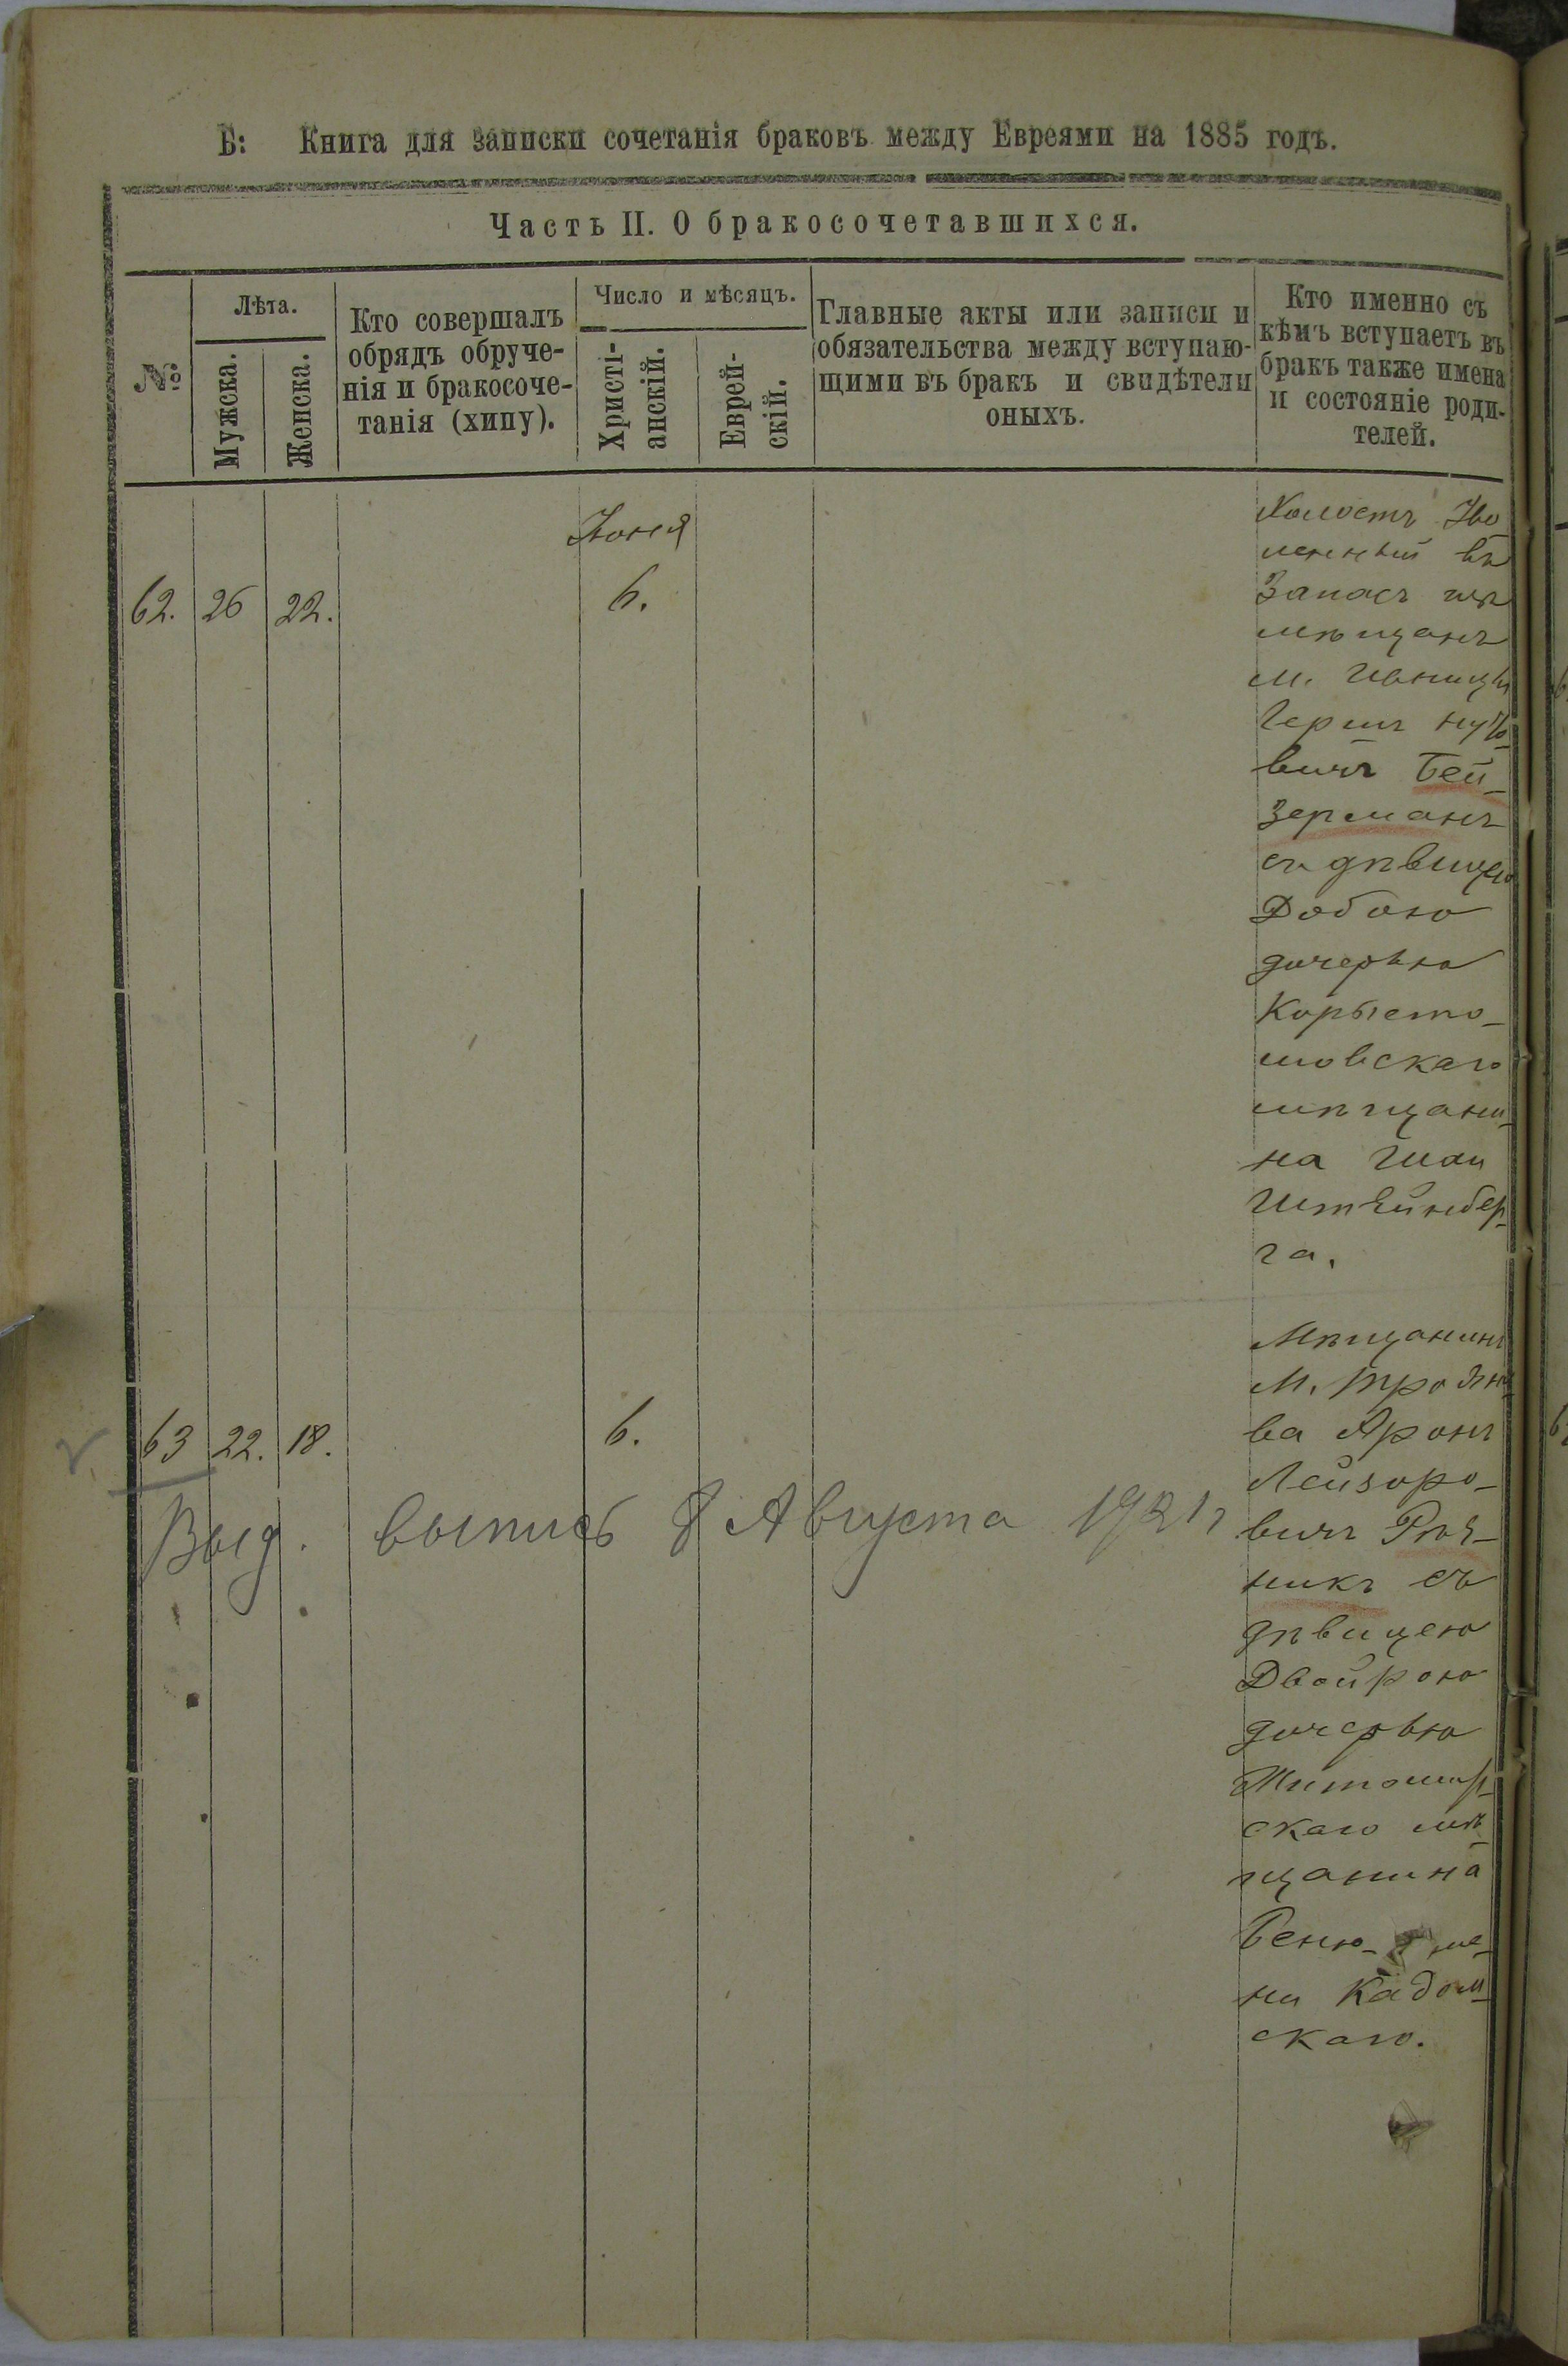 Б: Книга для записки сочетанія браковъ между Евреями на 1885 годъ.
Часть II. О бракосочетавшихся.
№
Лѣта.
Мужска.
Женска.
Кто совершалъ
обрядъ обруче-
нія и бракосоче-
танія (хипу).
Число и мѣсяцъ.
Христі-
анскій.
Еврей-
скій.
Главные акты или записи и
обязательства между вступаю-
щими въ бракъ и свидѣтели
оныхъ.
Кто именно съ
кѣмъ вступаетъ въ
бракъ также имена
и состояніе роди-
телей.
Іюня
62. 26 22. 6.
Холостъ Уво
ленный въ
Запасъ изъ
мѣщанъ
м. Ивницы
Гершъ
вичъ Бей-
зерманъ
съ дѣвицею
Добою
дочерью
Коросты-
шовскаго
мѣщани-
на Шаи
Штейнбер-
га.
63 22. 18. 6.
Мѣщанинъ
М. Трояно-
ва Аронъ
Лейзоро-
вичъ
никъ съ
дѣвицею
Двойрою
дочерью
Житомир-
скаго мѣ-
щанина
Беню-
ни Кадом-
скаго.
Выд. выпись 8 Августа 1921 г